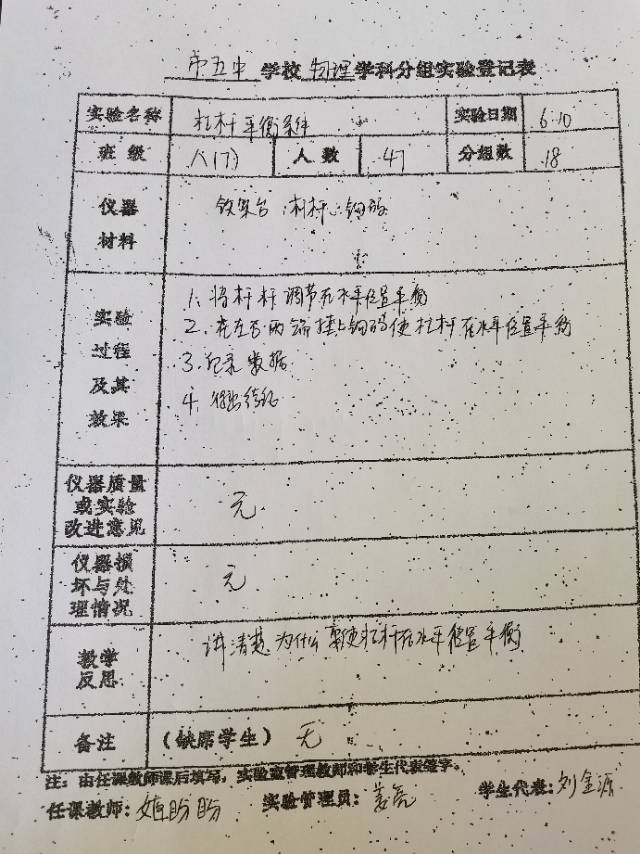 市五中 学校 物理 学科分组实验登记表
实验名称 杠杆平衡条件 实验日期 6.10
班级 八(7) 人数 47 分组数 18
仪器材料 铁架台、杠杆、钩码
实验过程及其效果
1、将杠杆调节在水平位置平衡
2、在左右两端挂上钩码使杠杆在水平位置平衡
3、记录数据
4、得出结论
仪器质量或实验改进意见 无
仪器损坏与处理情况 无
教学反思 讲清楚为什么要使杠杆在水平位置平衡
备注 (缺席学生) 无
注：由任课教师课后填写，实验室管理教师和学生代表签字。
任课教师： 盼盼 实验管理员： 学生代表：刘金源